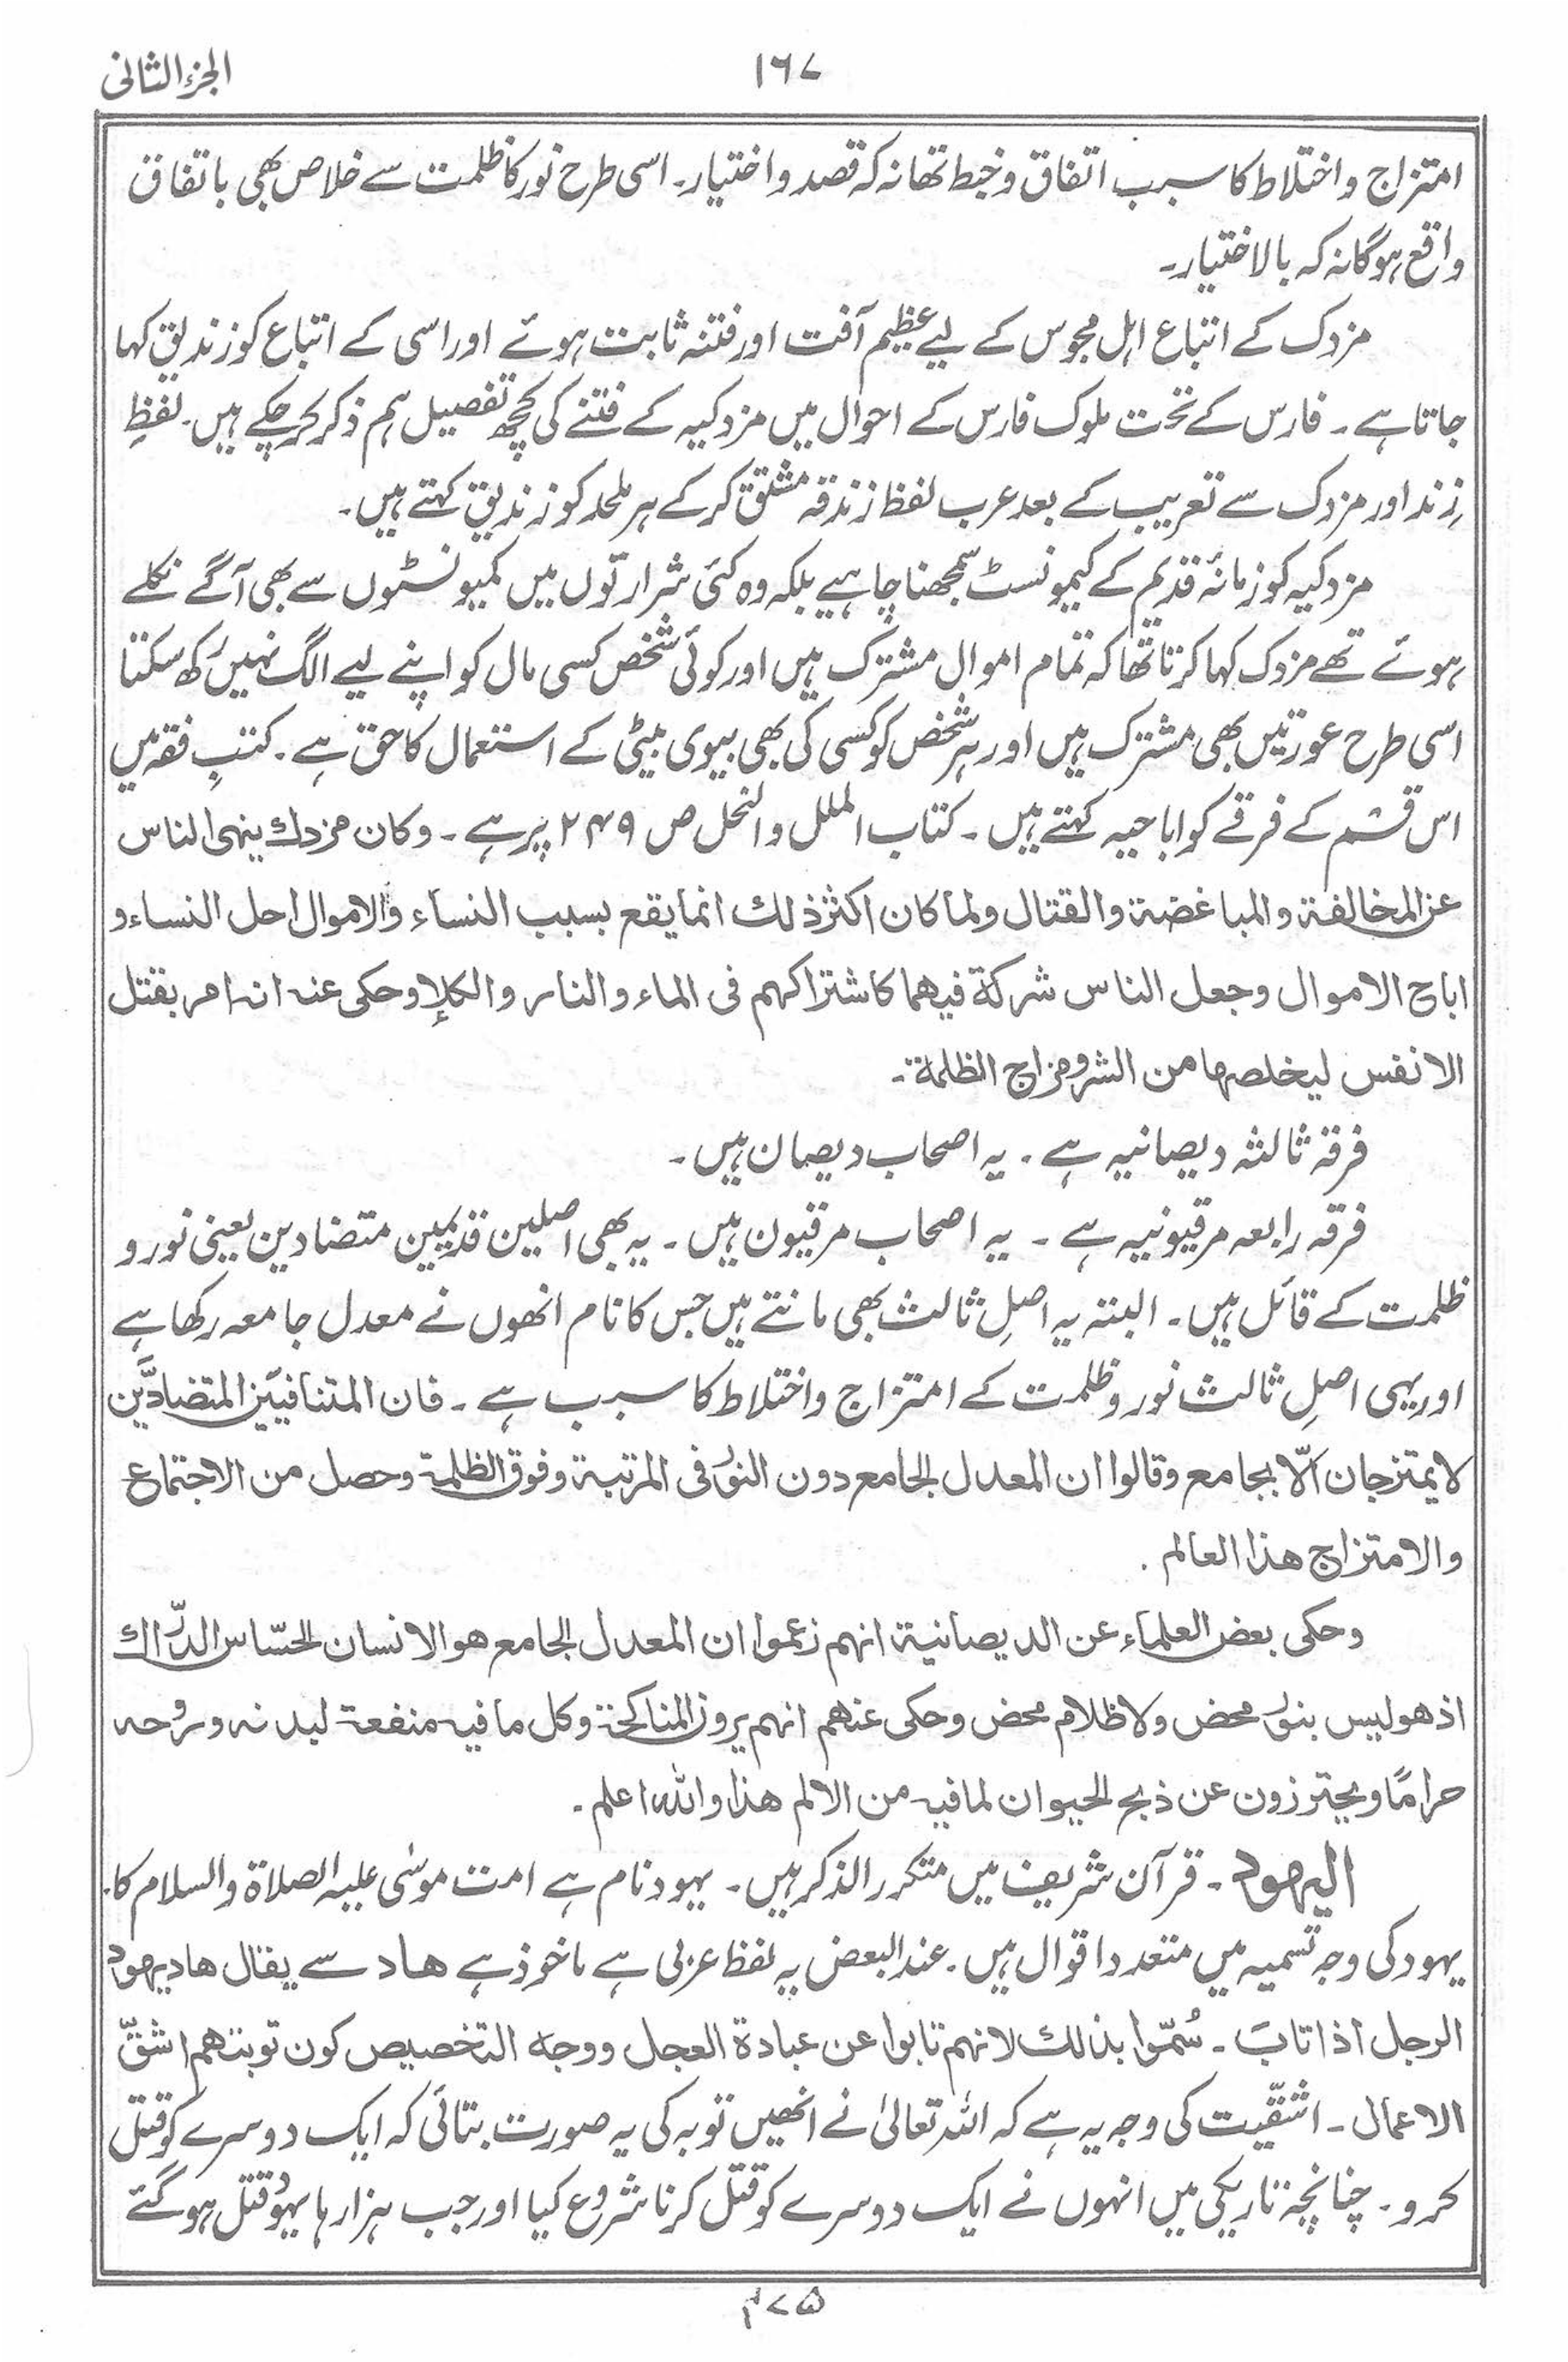 الجزء الثانی
۱۶۷
امتزاج و اختلاط کا سبب اتفاق و خبط تھا نہ کہ قصد و اختیار۔ اسی طرح نور کا ظلمت سے خلاص بھی باتفاق
واقع ہوگا نہ کہ بالاختیار۔
مزدک کے اتباع اہل مجوس کے لیے عظیم آفت اور فتنہ ثابت ہوئے اور اسی کے اتباع کو زندیق کہا
جاتا ہے۔ فارس کے تحت ملوک فارس کے احوال میں مزدکیہ کے فتنے کی کچھ تفصیل ہم ذکر کر چکے ہیں۔ لفظِ
زِند اور مزدک سے تعریب کے بعد عرب لفظ زندقہ مشتق کر کے ہر ملحد کو زندیق کہتے ہیں۔
مزدکیہ کو زمانۂ قدیم کے کیمونسٹ سمجھنا چاہیے بلکہ وہ کئی شرارتوں میں کمیونسٹوں سے بھی آگے نکلے
ہوئے تھے مزدک کہا کرتا تھا کہ تمام اموال مشترک ہیں اور کوئی شخص کسی مال کو اپنے لیے الگ نہیں رکھ سکتا
اسی طرح عورتیں بھی مشترک ہیں اور ہر شخص کو کسی کی بھی بیوی بیٹی کے استعمال کا حق ہے۔ کتبِ فقہ میں
اس قسم کے فرقے کو اباحیہ کہتے ہیں۔ کتاب الملل والنحل ص ۲۴۹ پر ہے۔ وکان مزدك ینہی الناس
عن المخالفۃ والمباغضۃ والقتال ولما کان اکثر ذلك انما یقع بسبب النساء والاموال احل النساء و
اباح الاموال وجعل الناس شرکۃ فیھما کاشتراکہم فی الماء والنار والکلإ وحکی عنہ انہ امر بقتل
الانفس لیخلصہا من الشر ومزاج الظلمۃ۔
فرقہ ثالثہ دیصانیہ ہے۔ یہ اصحاب دیصان ہیں۔
فرقہ رابعہ مرقیونیہ ہے۔ یہ اصحاب مرقیون ہیں۔ یہ بھی اصلین قدیمین متضادین یعنی نور و
ظلمت کے قائل ہیں۔ البتہ یہ اصلِ ثالث بھی مانتے ہیں جس کا نام انھوں نے معدل جامعہ رکھا ہے
اور یہی اصلِ ثالث نور و ظلمت کے امتزاج و اختلاط کا سبب ہے۔ فان المتنافیَین المتضادَّین
لا یمتزجان الّا بجامع وقالوا ان المعدل الجامع دون النور فی المرتبۃ وفوق الظلمۃ وحصل من الاجتماع
والامتزاج ھذا العالم۔
وحکی بعض العلماء عن الدیصانیۃ انہم زعموا ان المعدل الجامع ھو الانسان الحسّاس الدرّاك
اذ ھو لیس بنور محض ولا ظلام محض وحکی عنھم انہم یرون المناکحۃ وکل ما فیہ منفعۃ لبدنہ وروحہ
حرامًا ویحترزون عن ذبح الحیوان لما فیہ من الالم ھذا واللہ اعلم۔
الیہود۔ قرآن شریف میں متکرر الذکر ہیں۔ یہود نام ہے امت موسٰی علیہ الصلاۃ والسلام کا۔
یہود کی وجہ تسمیہ میں متعدد اقوال ہیں۔ عند البعض یہ لفظ عربی ہے ماخوذ ہے ھاد سے یقال ھاد یہود
الرجل اذا تابَ۔ سُمّوا بذالك لانہم تابوا عن عبادۃ العجل ووجہ التخصیص کون توبتھم اشقّ
الاعمال۔ اشقّیت کی وجہ یہ ہے کہ اللہ تعالیٰ نے انھیں توبہ کی یہ صورت بتائی کہ ایک دوسرے کو قتل
کرو۔ چنانچہ تاریکی میں انہوں نے ایک دوسرے کو قتل کرنا شروع کیا اور جب ہزارہا یہود قتل ہو گئے
۳۷۵